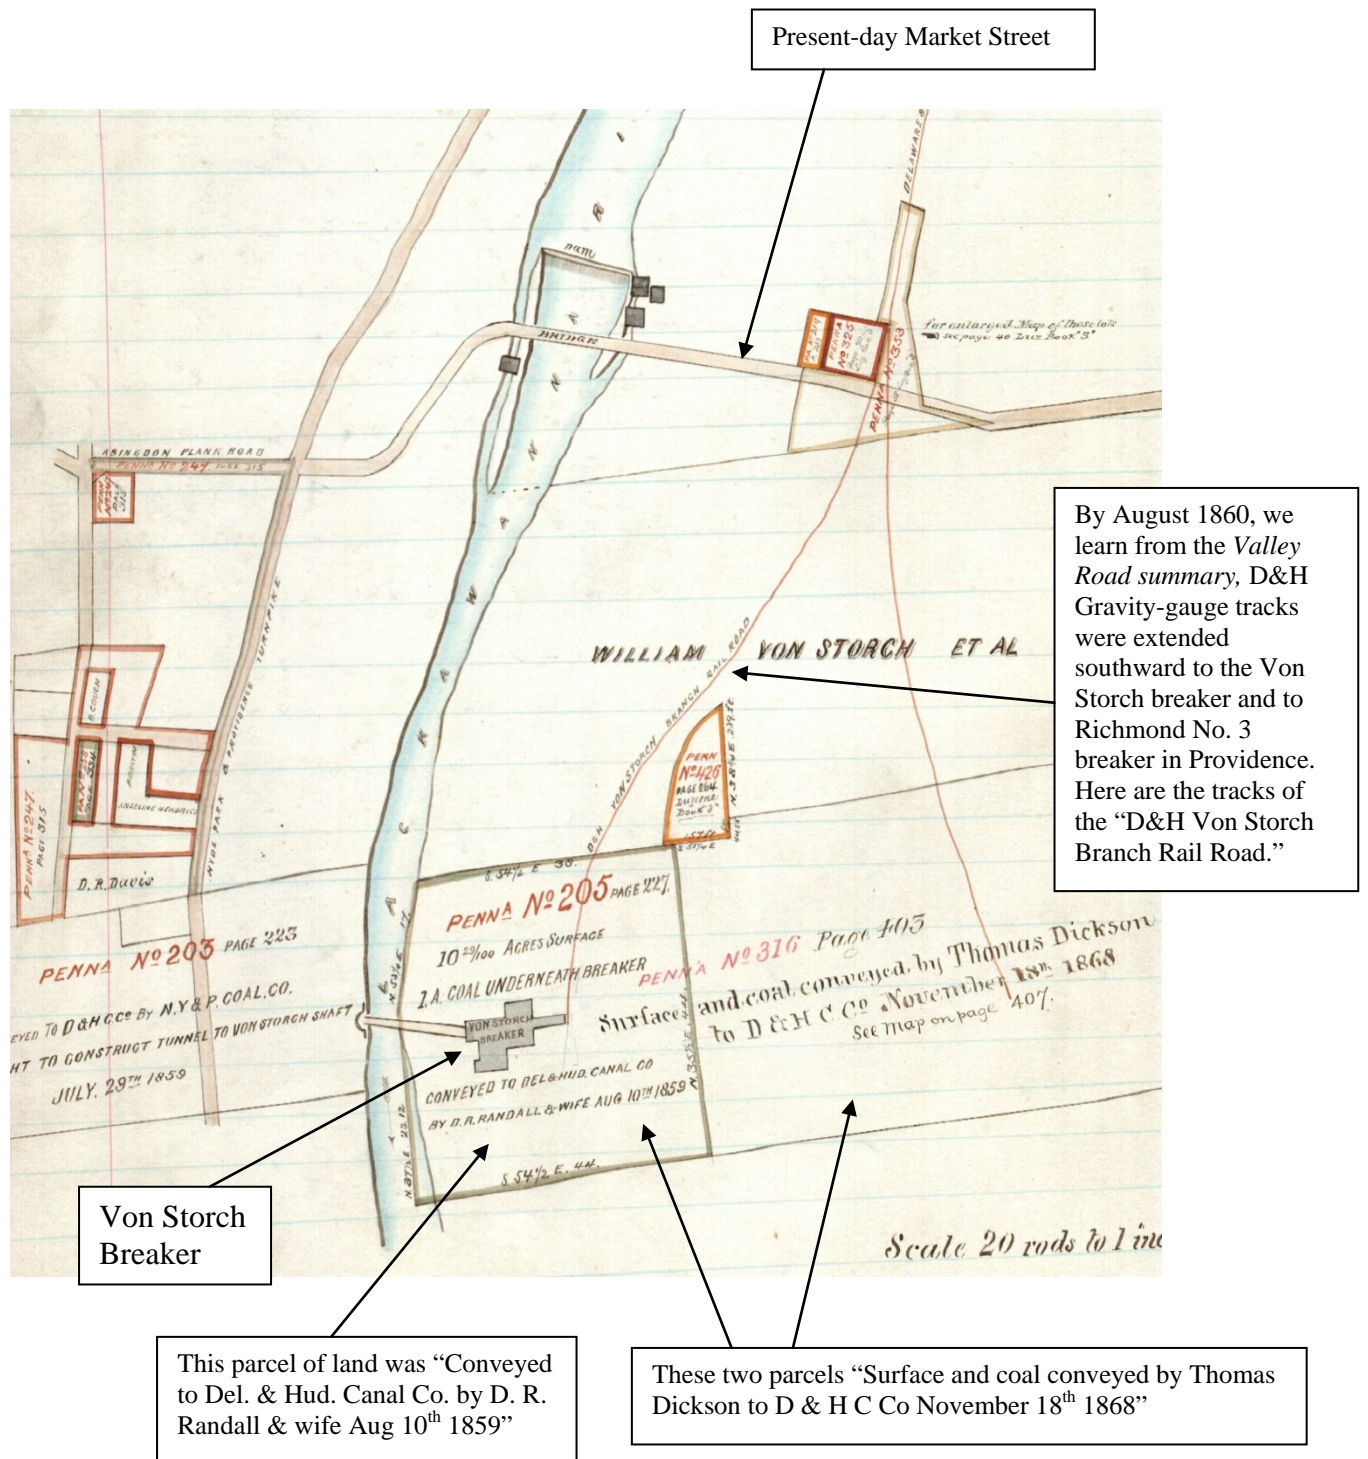 Present-day Market Street
DELAWARE &
DAM
BRIDGE
for enlarged Map of these lots
see page 40 Luz Book "3"
PENNA
No 325
PENNA No 353
ABINGDON PLANK ROAD
PENNA No 247 PAGE 315
PENNA
No 247
PAGE
315
LACKAWANNA RI
HYDE PARK & PROVIDENCE TURNPIKE
By August 1860, we
learn from the Valley
Road summary, D&H
Gravity-gauge tracks
were extended
southward to the Von
Storch breaker and to
Richmond No. 3
breaker in Providence.
Here are the tracks of
the “D&H Von Storch
Branch Rail Road.”
WILLIAM VON STORCH ET AL
D&H VON STORCH BRANCH RAIL ROAD
B. COUCH
PENNA No 247
PAGE 315
D. R. Davis
PENN
No 426
PAGE 264
Luzerne
Book 3"
N. 38 1/4 E. 239 ft.
157 ft
S. 54 1/2 E. 38.
PENNA No 205 PAGE 227
10 29/100 ACRES SURFACE
1 A. COAL UNDERNEATH BREAKER
VON STORCH
BREAKER
CONVEYED TO DEL & HUD. CANAL CO
BY D. R. RANDALL & WIFE AUG 10TH 1859
N. 35 1/2 E. 44.
S. 54 1/2 E. 44.
PENNA No 203 PAGE 223
EYED TO D&H C CO BY N.Y & P. COAL. CO.
HT TO CONSTRUCT TUNNEL TO VON STORCH SHAFT
JULY. 29TH 1859
PENN'A No 316 Page 403
Surface and coal conveyed, by Thomas Dickson
to D & H C Co November 18th 1868
See Map on page 407.
Scale 20 rods to 1 inc
Von Storch
Breaker
This parcel of land was “Conveyed
to Del. & Hud. Canal Co. by D. R.
Randall & wife Aug 10th 1859”
These two parcels “Surface and coal conveyed by Thomas
Dickson to D & H C Co November 18th 1868”